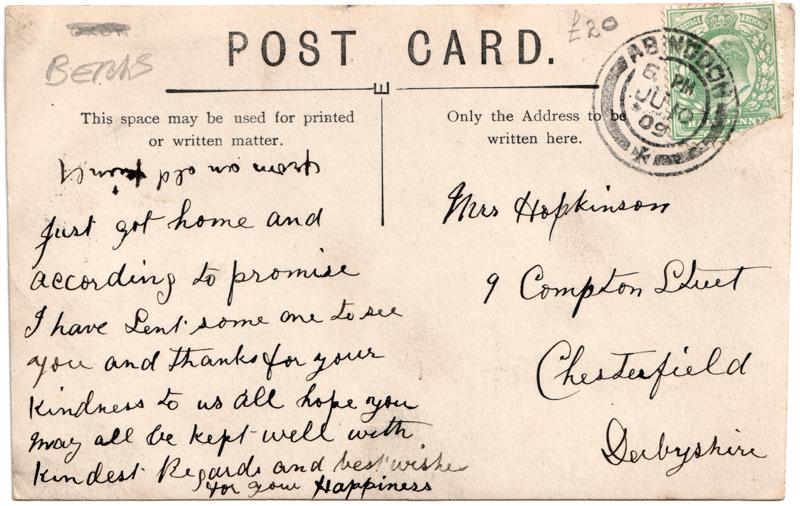 BERKS
£20
POST CARD.
E
This space may be used for printed
or written matter.
Only the Address to be
written here.
ABINGDON
6 PM
JU 10
09
POSTAGE REVENUE
PENNY
from an old friend
Just got home and
according to promise
I have sent some one to see
you and thanks for your
kindness to us all hope you
may all be kept well with
kindest Regards and best wishes
for your Happiness
Mrs Hopkinson
9 Compton Street
Chesterfield
Derbyshire